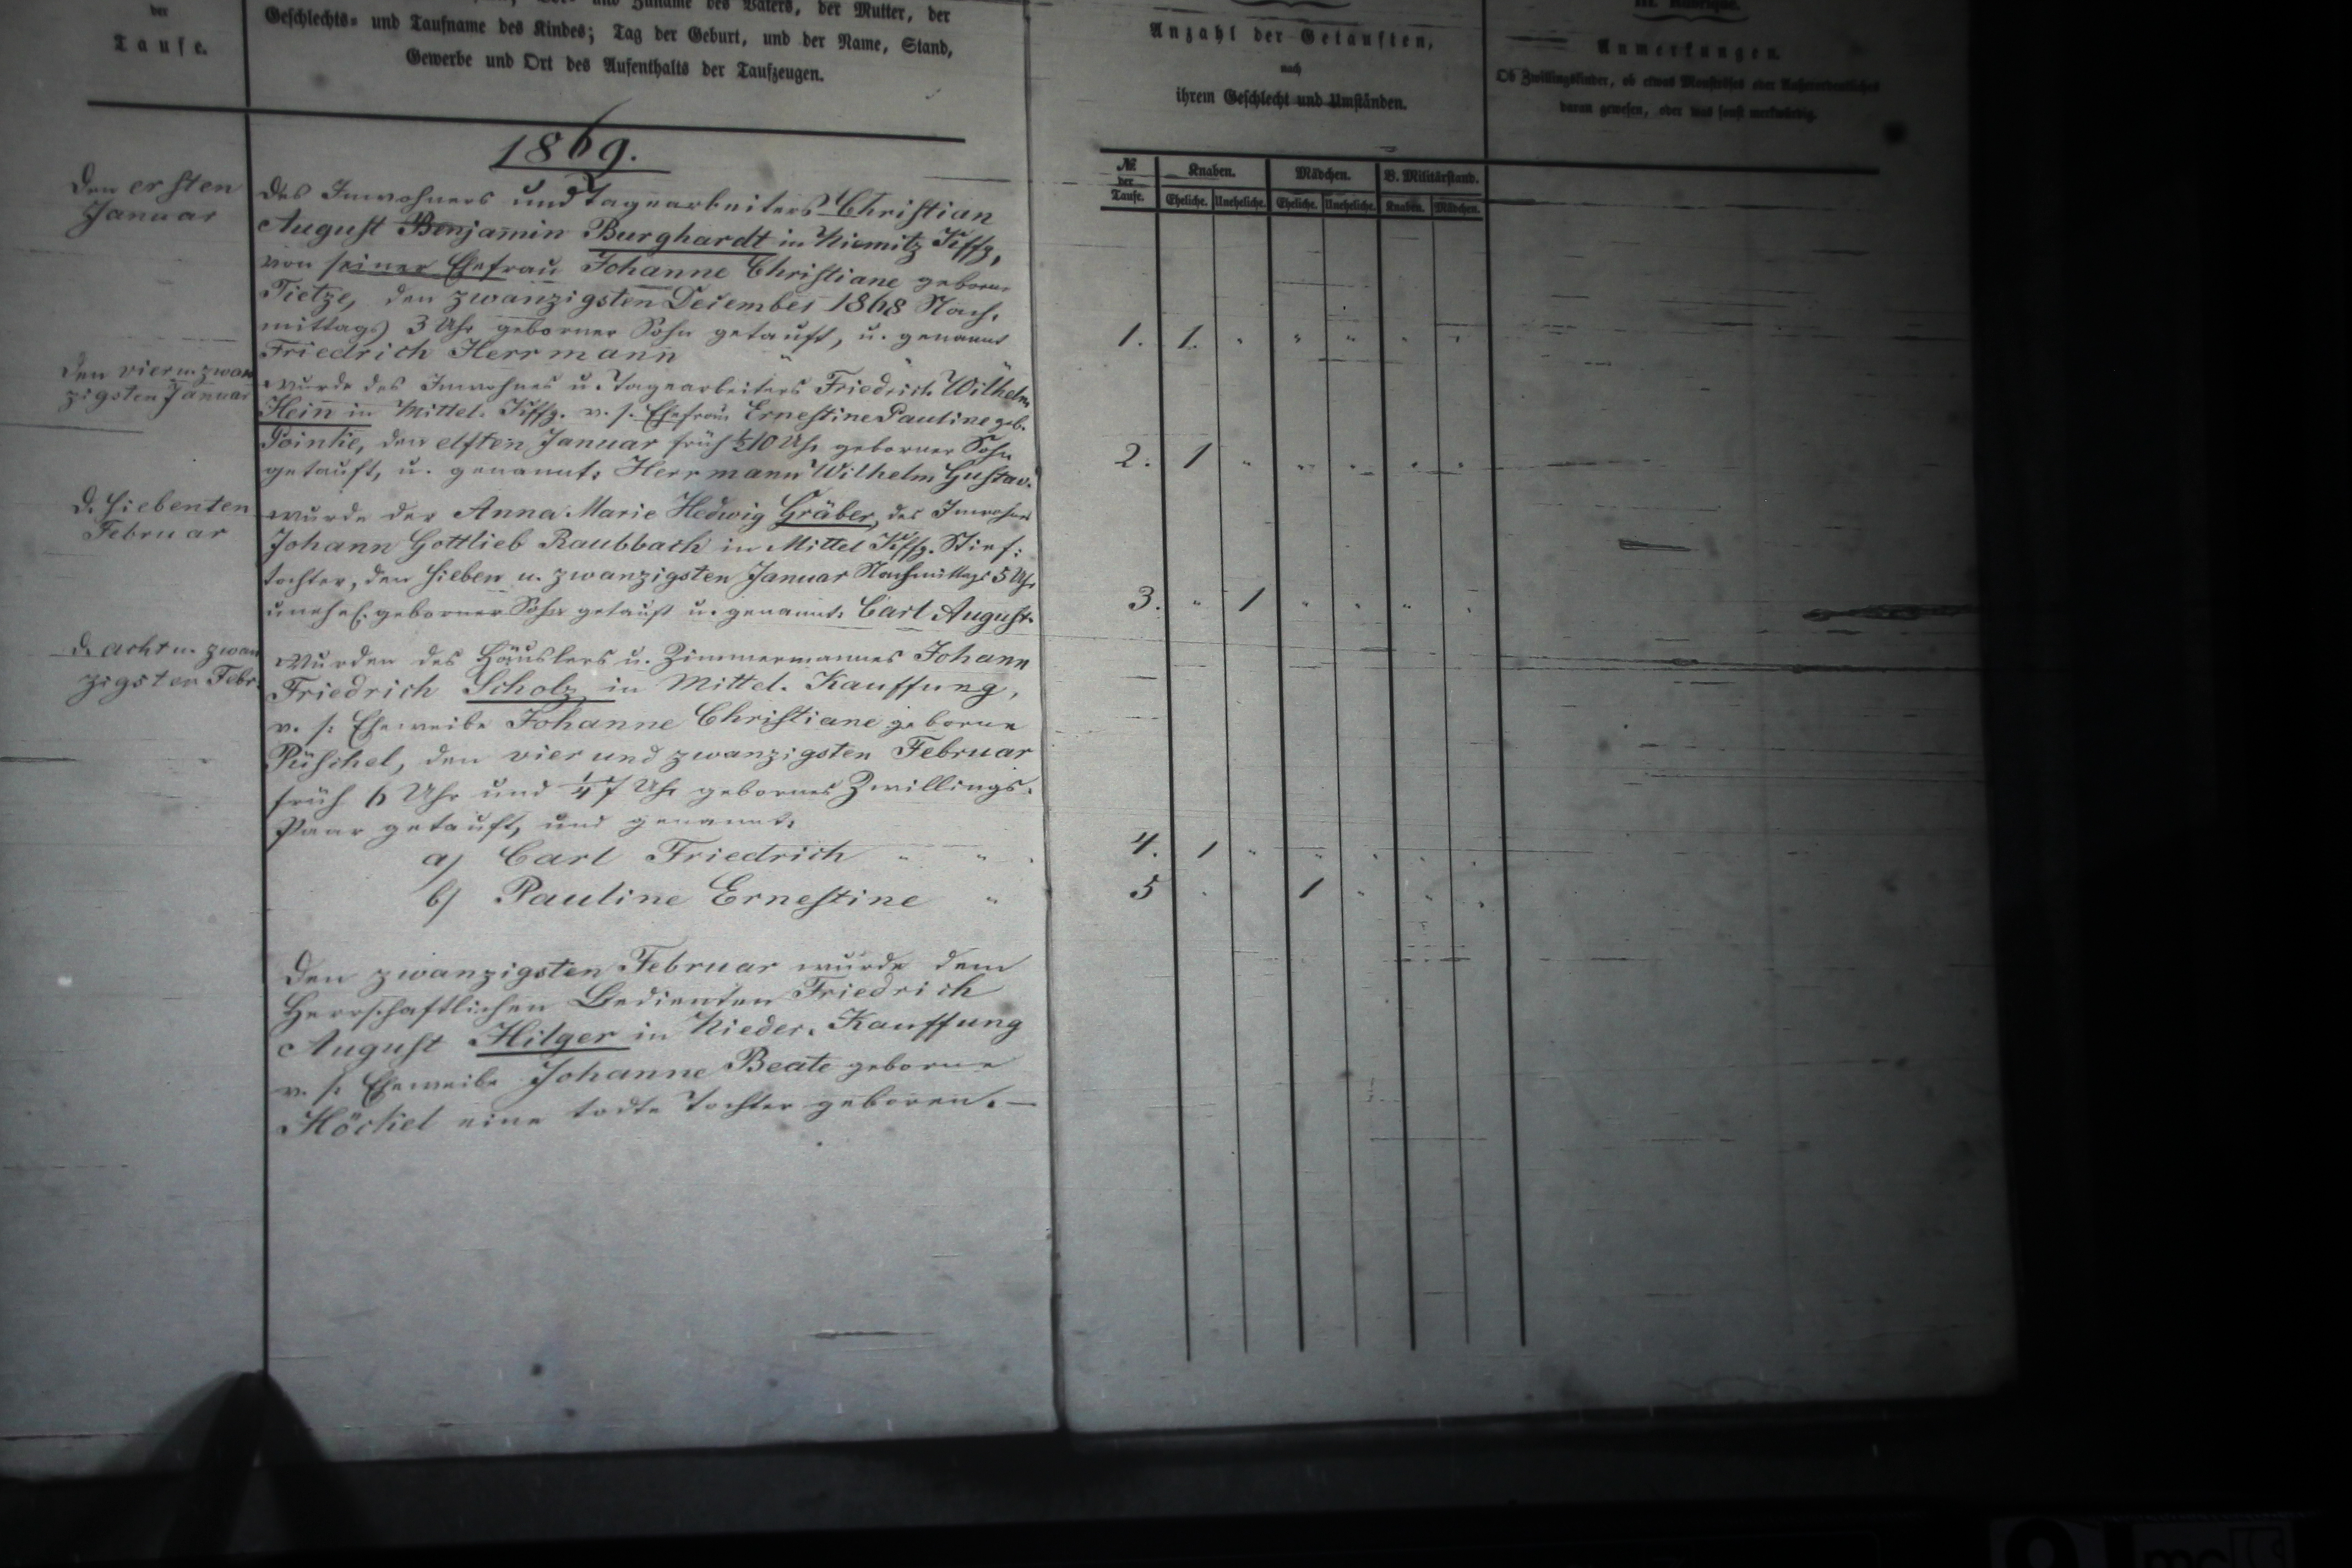 der
Taufe.
Zuname des Vaters, der Mutter, der
Geschlechts- und Taufname des Kindes; Tag der Geburt, und der Name, Stand,
Gewerbe und Ort des Aufenthalts der Taufzeugen.
1869.
Den ersten
Januar
Des Inwohners und Tagearbeiters Christian
August Benjamin Burghardt in Niemitz Kffg,
von seiner Ehefrau Johanne Christiane geborne
Tietze, den zwanzigsten December 1868 Nach,
mittags 3 Uhr geborner Sohn getauft, u. genannt
Friedrich Herrmann
Den vier u. zwan
zigsten Januar
wurde des Inwohners u. Tagearbeiters Friedrich Wilhelm
Hein in Mittel. Kffg. v. s. Ehefrau Ernestine Pauline geb.
den elften Januar früh ½10 Uhr geborner Sohn
getauft, u. genannt: Herrmann Wilhelm Gustav.
D. siebenten
Februar
wurde der Anna Marie Hedwig Gräber, des Inwohners
Johann Gottlieb Raubbach in Mittel Kffg. Stief:
tochter, den sieben u. zwanzigsten Januar Nachmittags 5 Uhr
unehel. geborner Sohn getauft u. genannt: Carl August.
D. acht u. zwan
zigsten Febr.
Wurden des Häuslers u. Zimmermannes Johann
Friedrich Scholz in Mittel. Kauffung,
v. s: Eheweibe Johanne Christiane geborne
Püschel, den vier und zwanzigsten Februar
früh 6 Uhr und ¼7 Uhr gebornes Zwillings.
Paar getauft, und genannt:
a) Carl Friedrich " "
b) Pauline Ernestine "
Den zwanzigsten Februar wurde dem
Herrschaftlichen Bedienten Friedrich
August Hilger in Nieder. Kauffung
v. s: Eheweibe Johanne Beate geborne
Höckel eine todte Tochter geboren. —
Anzahl der Getauften,
nach
ihrem Geschlecht und Umständen.
№ der Taufe. Knaben. Mädchen. B. Militärstand.
Eheliche. Uneheliche. Eheliche. Uneheliche. Knaben. Mädchen.
1. 1. " " " " "
2. 1 " " " " "
3. " 1 " " " "
4. 1 " " " " "
5 " 1 " " "
III. Rubrique.
Anmerkungen.
Ob Zwillingskinder, ob etwas Monströses oder Außerordentliches
daran gewesen, oder was sonst merkwürdig.